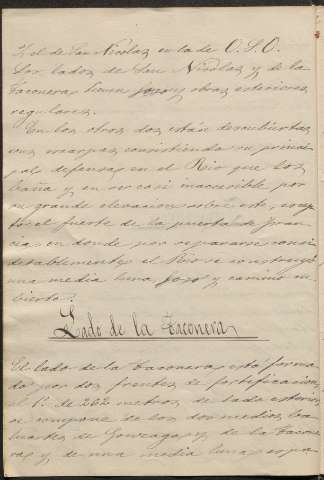 y el de San Nicolas en la de O. S. O.
Los lados de San Nicolas y de la
Taconera tienen foso y obras esteriores
regulares.
En los otros dos están descubiertas
sus escarpas, consistiendo su princi-
pal defensa en el Rio que los
baña y en ser casi inaccesible por
su grande elevacion sobre este, escep-
to el fuerte de la puerta de Fran-
cia, en donde por separarse consi-
derablemente el Rio se construyó
una media luna, foso y camino cu-
bierto.
Lado de la Taconera
El lado de la Taconera está forma-
do por dos frentes de fortificacion,
el 1º de 262 metros de lado esterior
se compone de los dos medios ba-
luartes de Gonzaga y de la Tacone-
ra y de una media luna